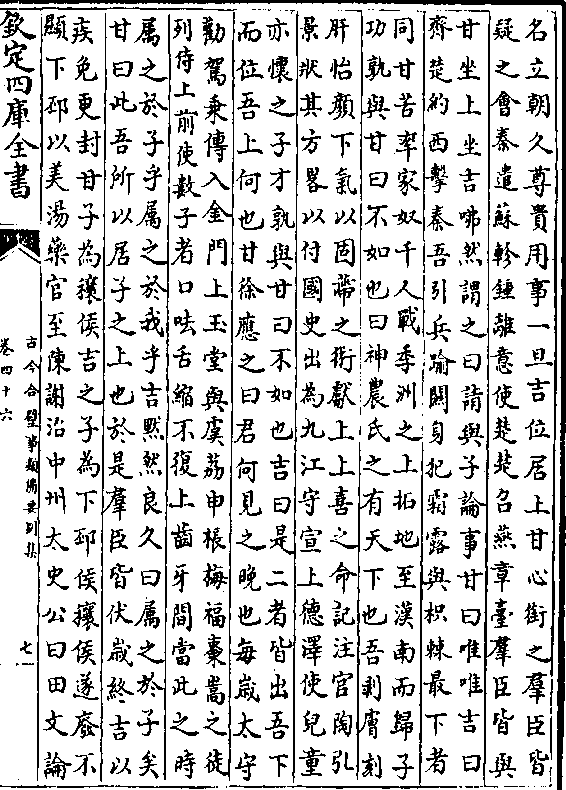 名立朝久尊貴用事一旦吉位居上甘心衘之羣臣皆
疑之會秦遣蘇軫鍾離意使楚楚召燕章臺羣臣皆與
甘坐上坐吉咈然謂之曰請與子論事甘曰唯唯吉曰
齊楚約西擊秦吾引兵踰關身犯霜露與枳棘最下者
同甘苦率家奴千人戰季洲之上拓地至漢南而歸子
功孰與甘曰不如也曰神農氏之有天下也吾剥膚刻
肝怡顏下氣以固蒂之術獻上上喜之命記注官陶弘
景狀其方畧以付國史出為九江守宣上德澤使兒童
亦懷之子才孰與甘曰不如也吉曰是二者皆出吾下
而位吾上何也甘徐應之曰君何見之晚也每嵗太守
勸駕乗傳入金門上玉堂與虞荔申棖梅福棗嵩之徒
列侍上前使數子者口呿舌縮不復上齒牙間當此之時
属之於子乎属之於我乎吉黙然良久曰属之於子矣
甘曰此吾所以居子之上也於是羣臣皆伏嵗終吉以
疾免更封甘子為穰侯吉之子為下邳侯穰侯遂廢不
顯下邳以美湯藥官至陳謝治中州太史公曰田文論
欽定四庫全書
古今合璧事類備要别集
卷四十六
七